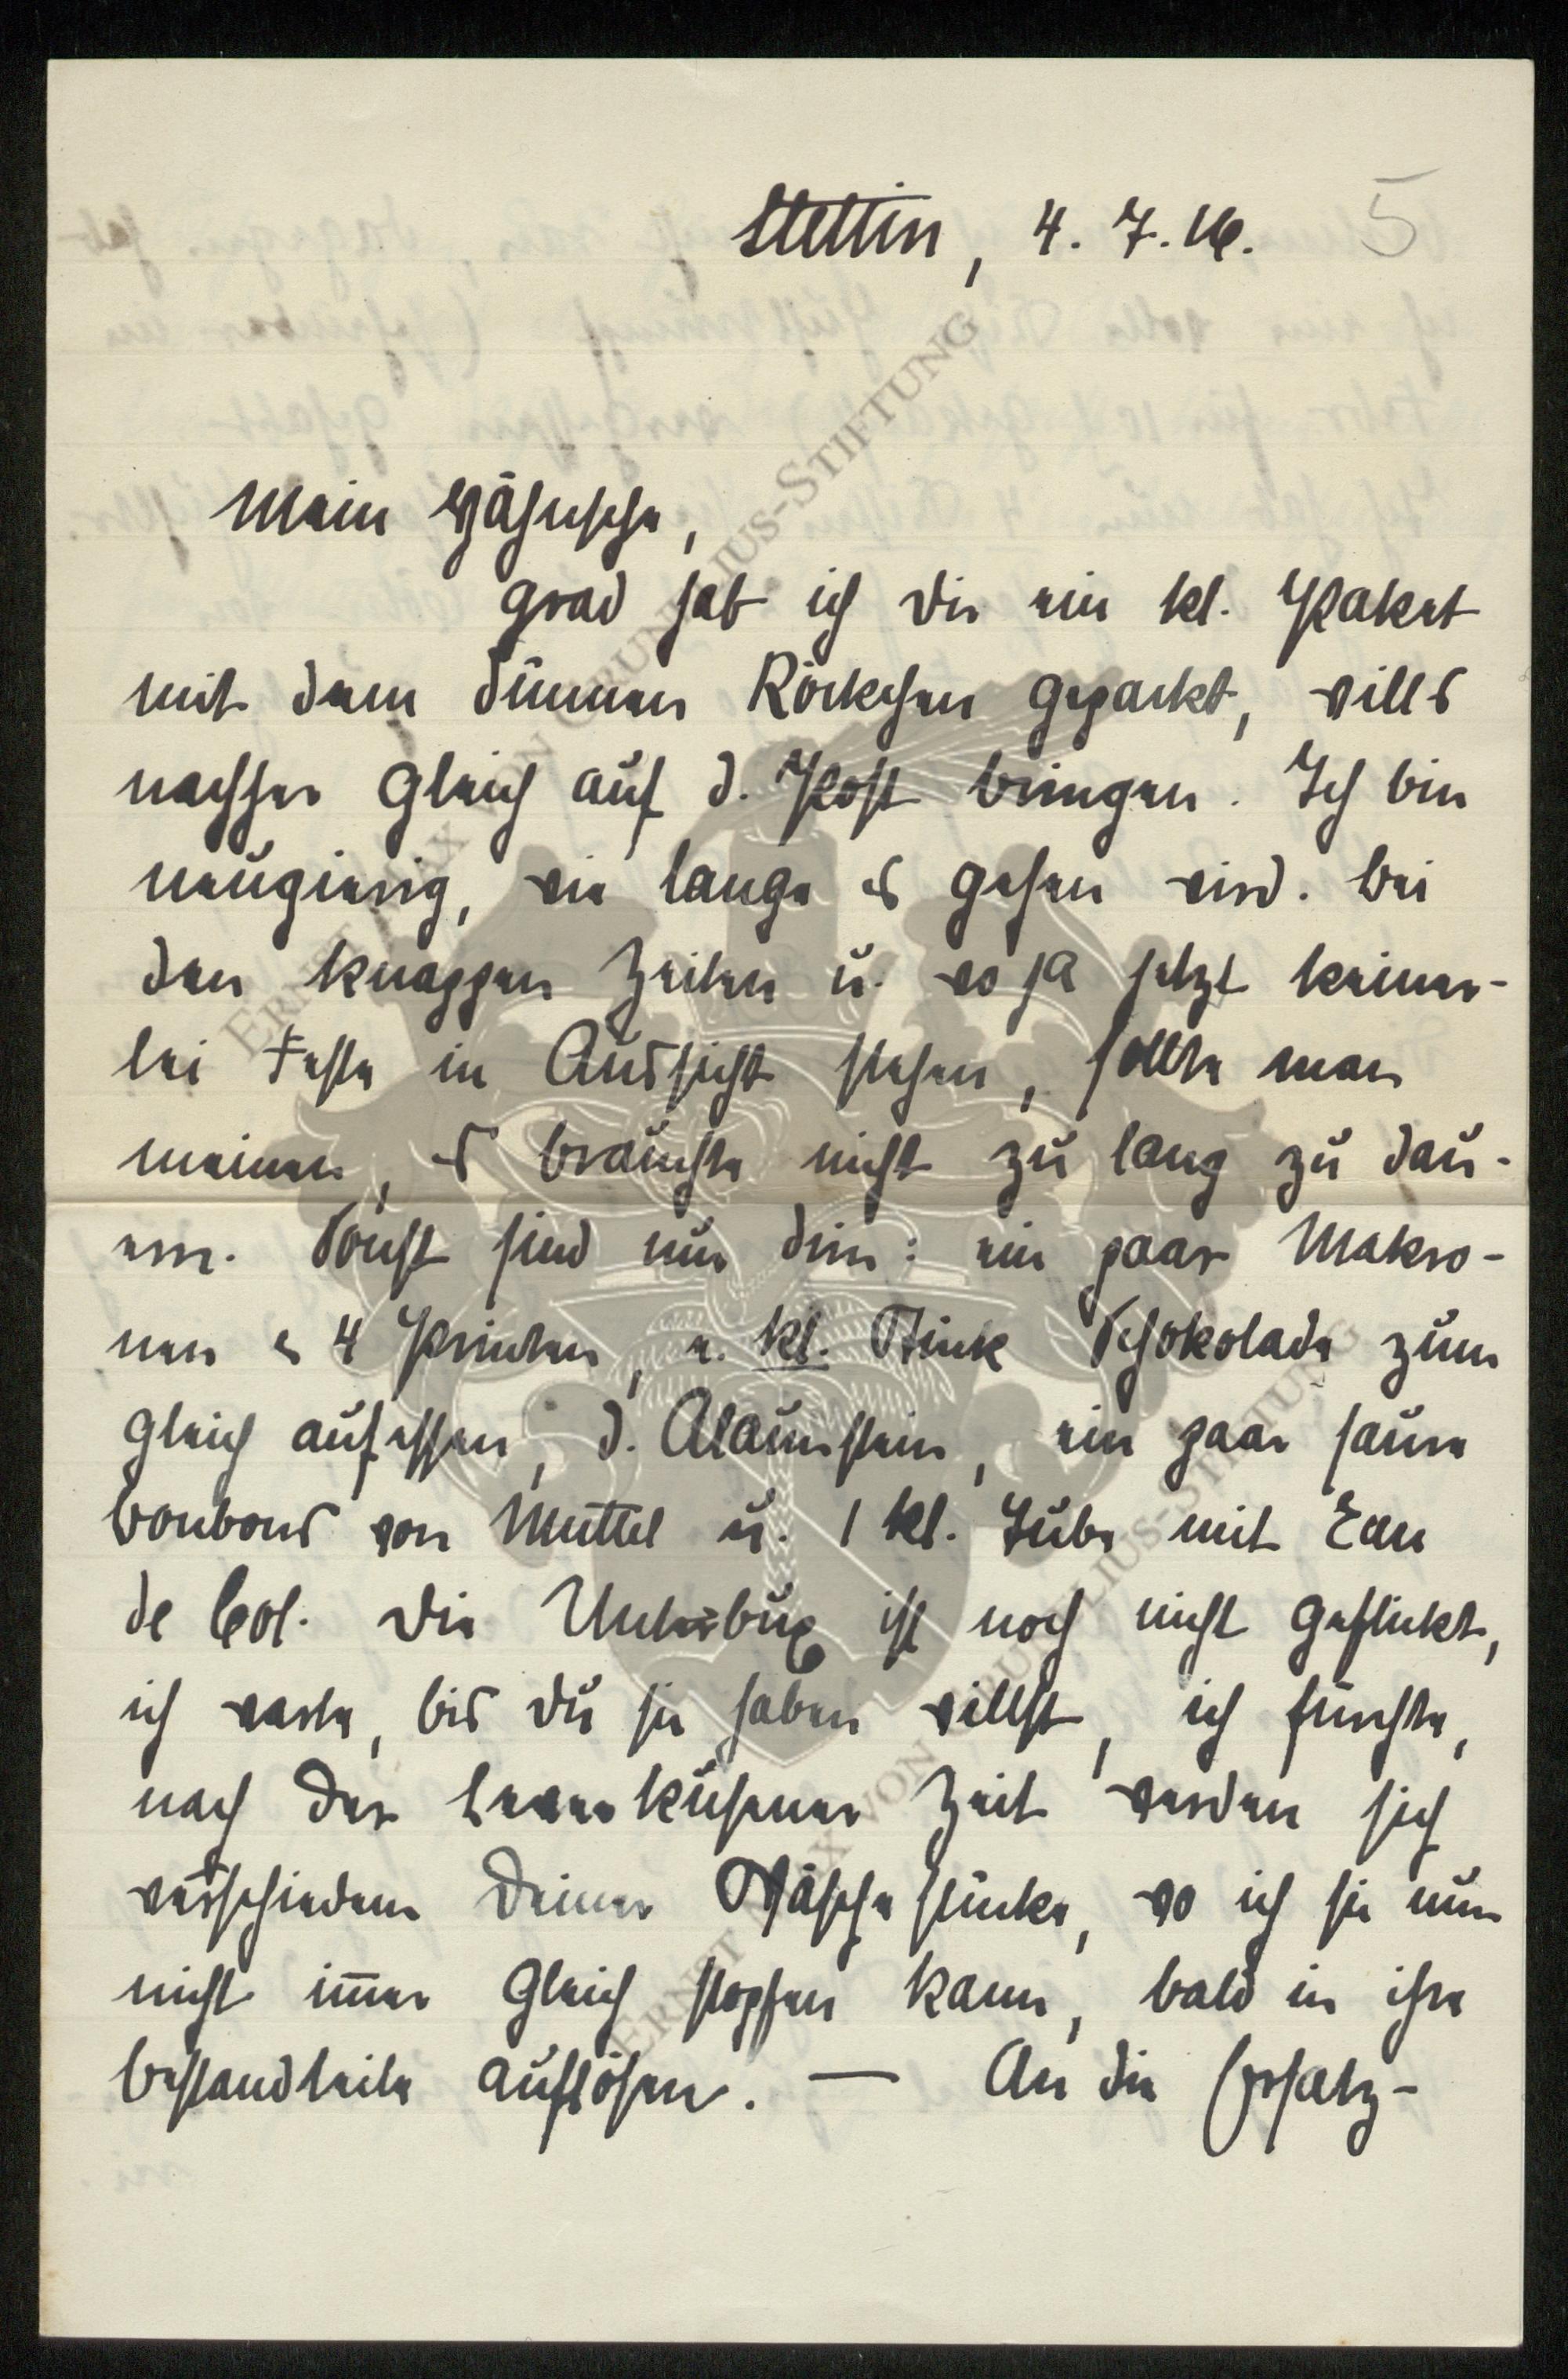 Stettin, 4. 7. 16.
5
Mein Hähnsche,
grad hab ich Dir ein kl. Paket
mit dem dünnen Röckchen gepackt, will's
nachher gleich auf d. Post bringen. Ich bin
neugierig, wie lange es gehen wird. Bei
den knappen Zeiten u. wo ja jetzt keiner-
lei Feste in Aussicht stehen, sollte man
meinen, es brauchte nicht zu lang zu dau-
ern. Sonst sind nur drin: ein paar Makro-
nen & 4 Printen, e. kl. Stück Schokolade zum
gleich aufessen, d. Alaunstein, ein paar saure
Bonbons von Muttel u. 1 kl. Tube mit Eau
de Col. Die Unterbüx ist noch nicht geflickt,
ich warte, bis Du sie haben willst, ich fürchte,
nach der Zeit werden sich
verschiedene Deiner Wäschestücke, wo ich sie nun
nicht im̅er gleich stopfen kann, bald in ihre
Bestandteile auflösen. — An die Ersatz-
ERNST MAX VON GRUNELIUS-STIFTUNG
ERNST MAX VON GRUNELIUS-STIFTUNG